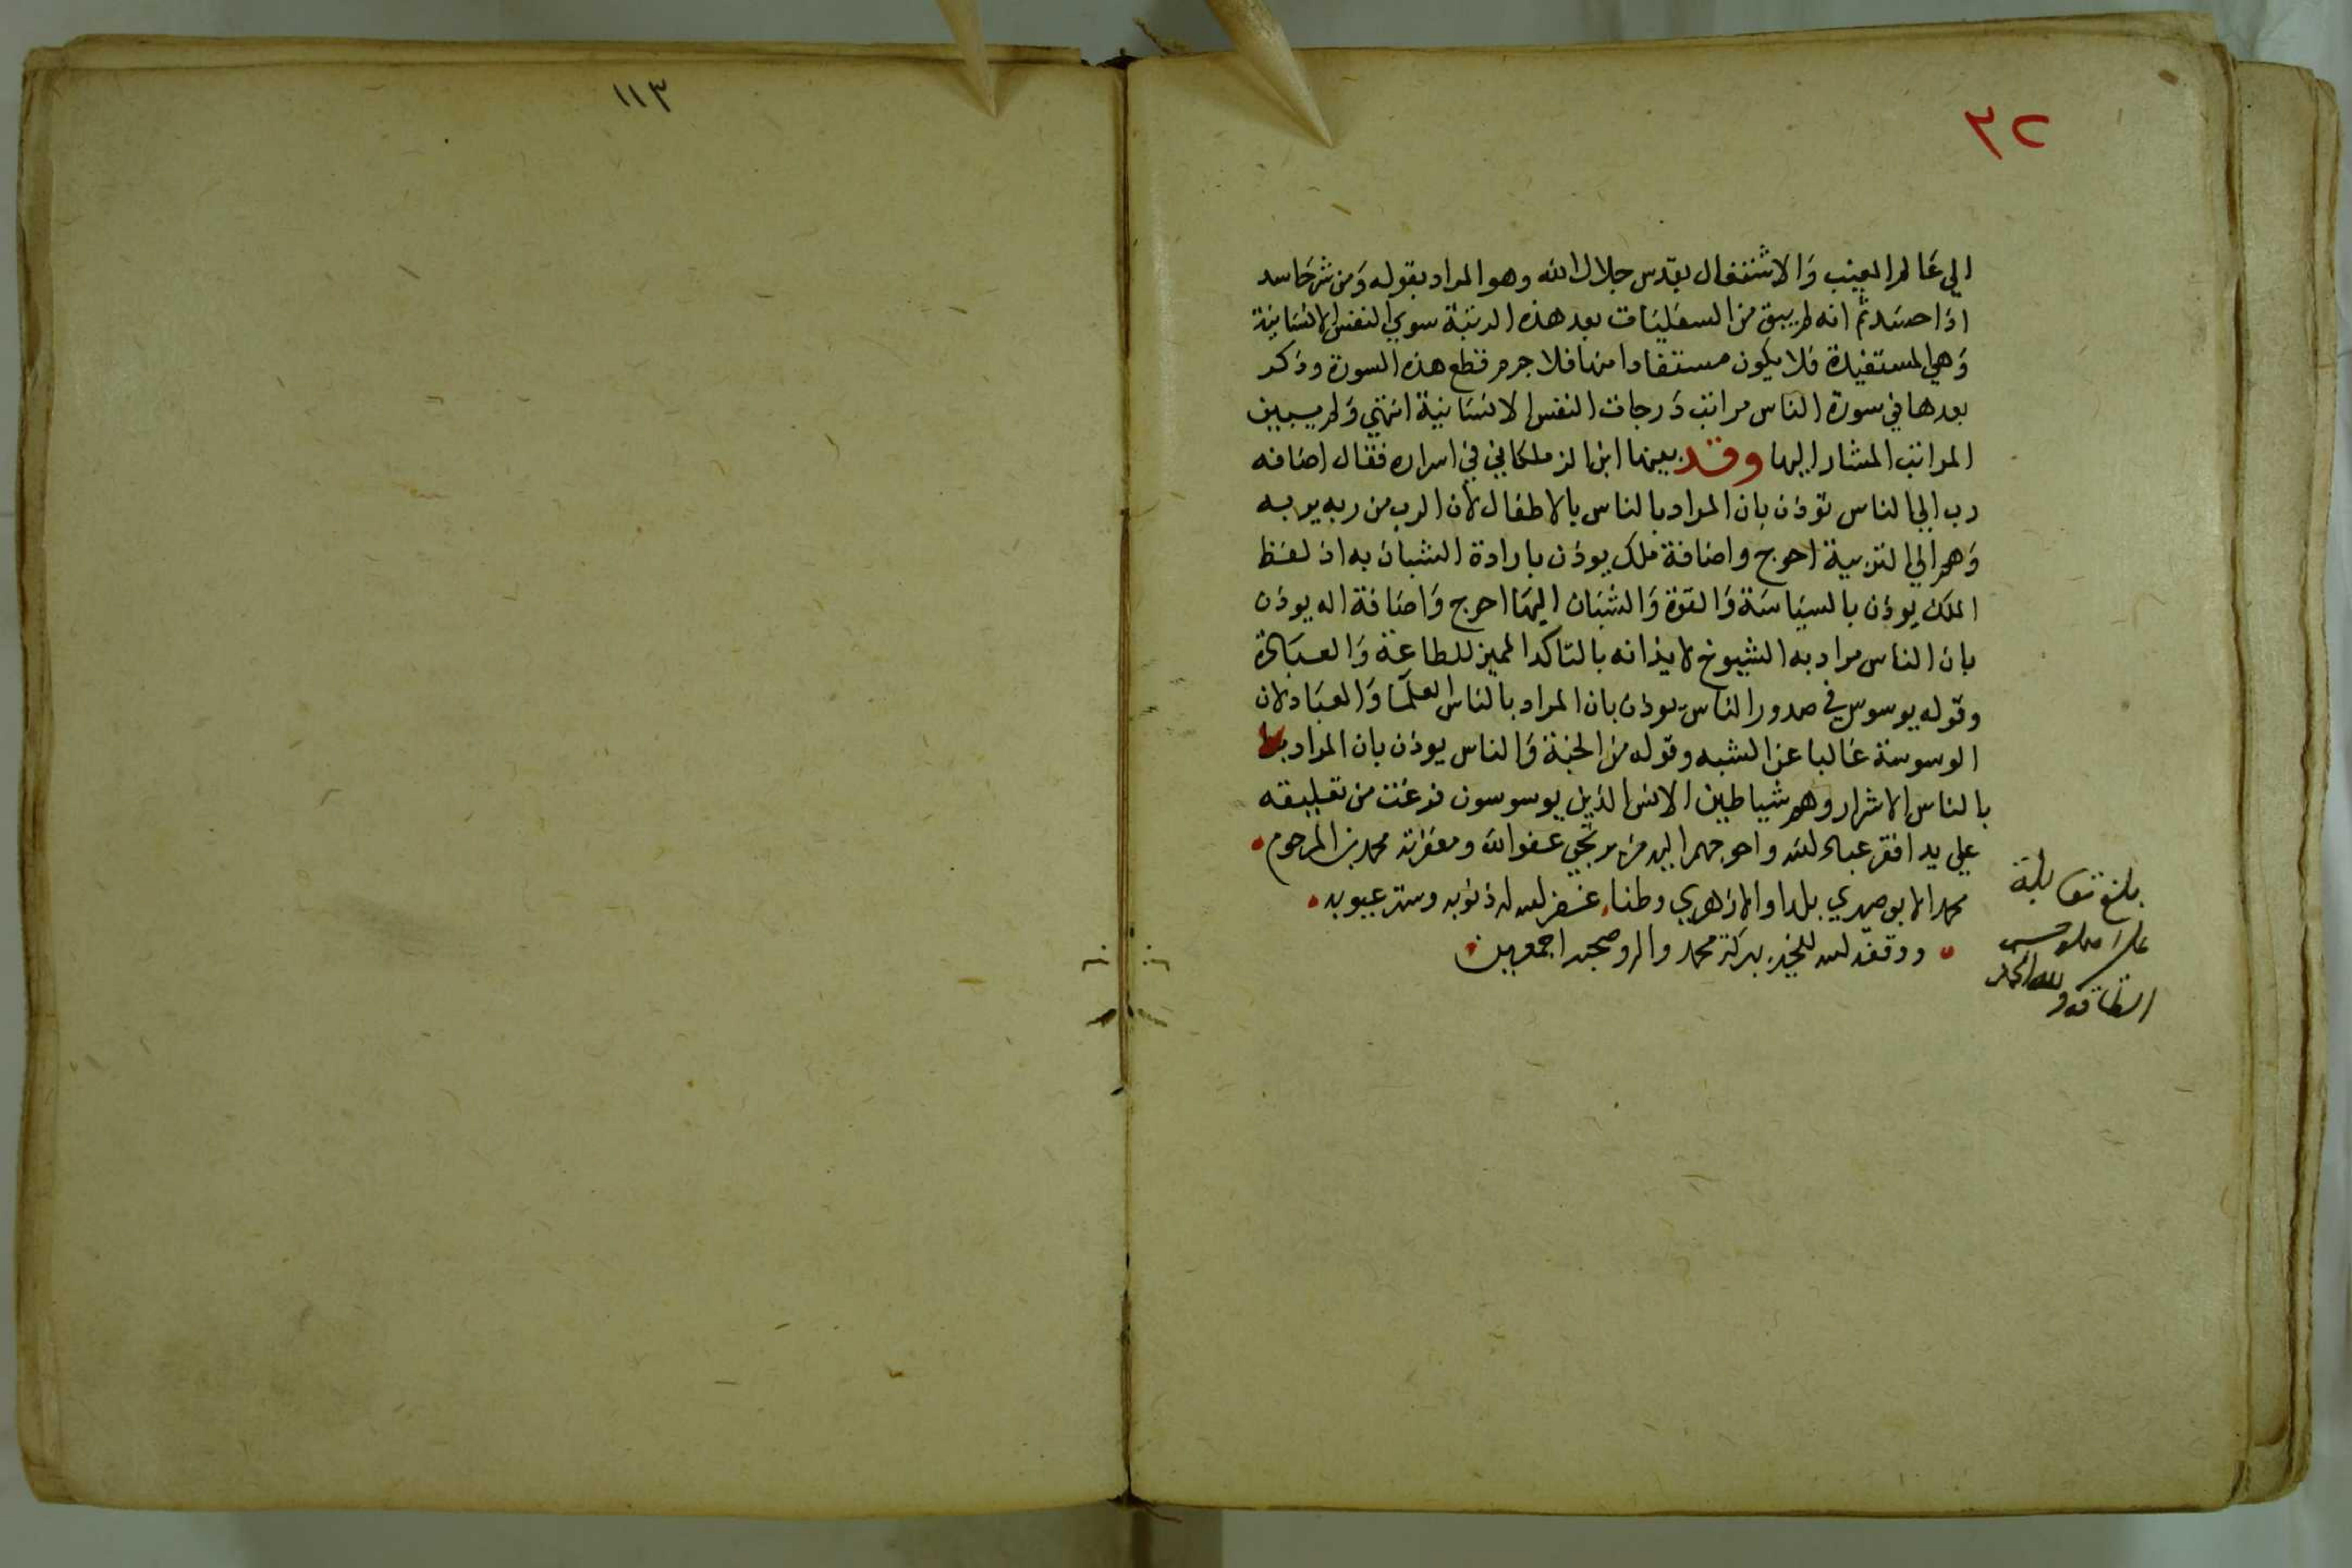 ٣٢
الي عَالم الغيب وَالاشتغال بقدس جلال الله وهو المراد بقوله وَمن شر حَاسد
اذا حسَد ثم انه لم يبق من السفليَات بعد هذه الرتبة سوي النفس الانسَانية
وَهي المستفيدة فلا يكون مستفادا منها فلا جرم قطع هذه السورة وذكر
بعدها في سورة الناس مراتب دَرجات النفس الانسَانية انتهي وَلم يبين
المراتب المشار اليها وقد بينها ابن الزملكاني في اسراره فقال اضافه
رب الي الناس توذن بان المراد بالناس بالاطفال لان الرب من ربه يربه
وَهم الي التربية احوج واضافة ملك يوذن بارادة الشبان به اذ لفظ
الملك يوذن بالسيَاسَة وَالقوة وَالشبَان اليهَا احوج وَاضَافة اله يوذن
بان الناس مراد به الشيوخ لايذانه بالتاكد المميز للطاعَة وَالعبَادة
وقوله يوسوس في صدور الناس يوذن بان المراد بالناس العلمَا وَالعبَاد لان
الوسوسَة غَالبا عن الشبه وقوله من الجنة وَالناس يوذن بان المراد
بالناس الاشرار وهم شياطين الانس الذين يوسوسون فرغت من تعليقه
علي يد افقر عباد الله واحوجهم اليه من يرتجي عفو الله ومغفرته محمد بن المرحوم
محمد الابوصيري بلدا والازهري وطنا غفر الله له ذنوبه وستر عيوبه
ووفقه الله للخير ببركة محمد واله وصحبه اجمعين
بلغ مقابلة
على
الطاقة ولله الحمد
١١٣